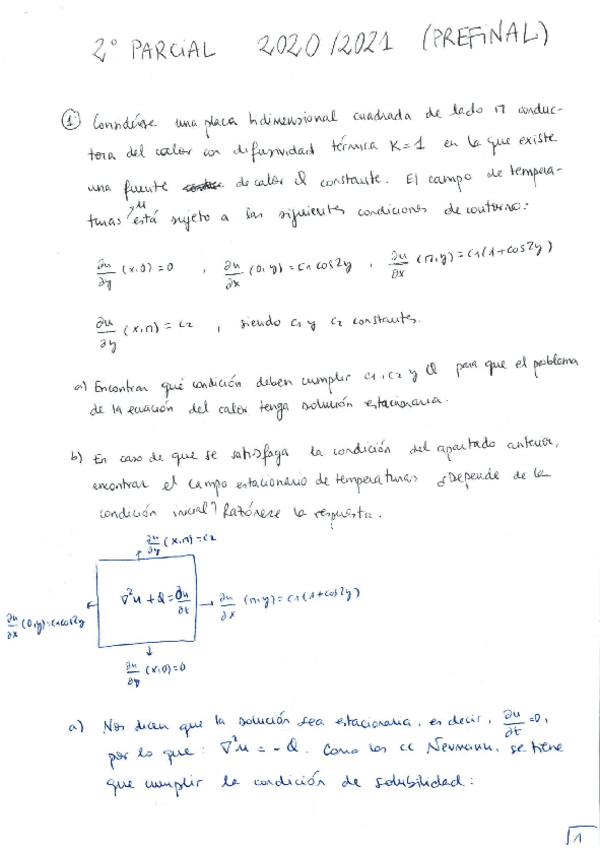 2º PARCIAL 2020/2021 (PREFINAL)
① Considérese una placa bidimensional cuadrada de lado π conduc-
tora del calor con difusividad térmica K=1 en la que existe
una fuente de calor Q constante. El campo de tempera-
turas, u está sujeto a las siguientes condiciones de contorno:
∂u/∂y (x,0)=0 , ∂u/∂x (0,y)=c1 cos2y , ∂u/∂x (π,y)=c1(1+cos2y)
∂u/∂y (x,π)=c2 , siendo c1 y c2 constantes.
a) Encontrar qué condición deben cumplir c1, c2 y Q para que el problema
de la ecuación del calor tenga solución estacionaria.
b) En caso de que se satisfaga la condición del apartado anterior,
encontrar el campo estacionario de temperaturas ¿Depende de la
condición inicial? Razónese la respuesta.
∂u/∂y (x,π)=c2
∇²u + Q = ∂u/∂t
∂u/∂x (0,y)=c1cos2y
∂u/∂x (π,y)=c1(1+cos2y)
∂u/∂y (x,0)=0
a) Nos dicen que la solución sea estacionaria, es decir, ∂u/∂t=0,
por lo que: ∇²u = -Q. Como las cc Neumann, se tiene
que cumplir la condición de solubilidad:
1